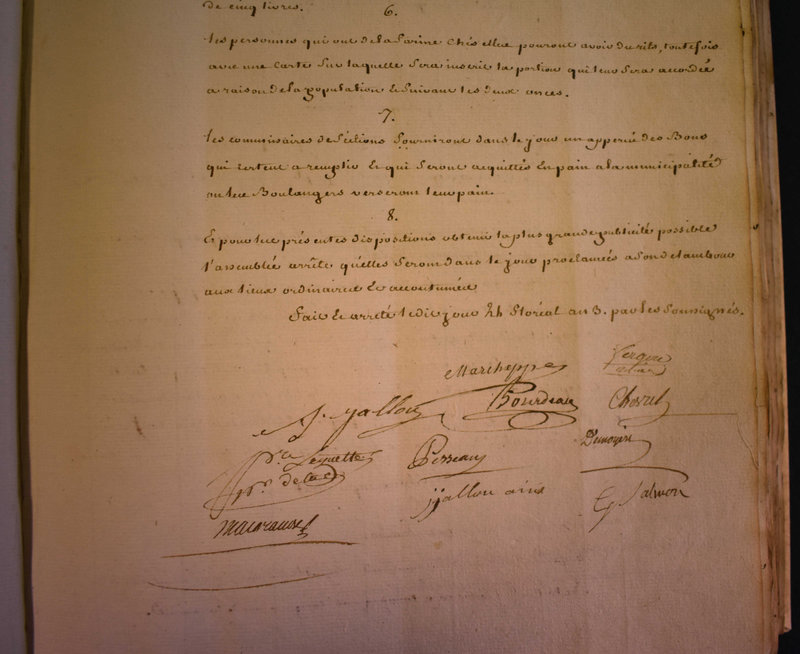 de cinq livres.
6.
Les personnes qui ont de la farine chés elle pouront avoir du rils, toutefois
avec une carte sur laquelle sera inscrit la portion qui leur sera accordée
a raison de la population Et suivant les deux onces.
7.
Les commissaires de Séctions fourniront dans le jour un apperçu des Bons
qui restent a remplir Et qui seront acquittés En pain a la municipalité
ou les Boulangers verseront leur pain.
8.
Et pour les présentes dispositions obtenir la plus grande publicité possible
l'assemblée arrête qu'elles seront dans le jour proclamées a son de tambour
aux lieux ordinaires Et accoutumés
Fait Et arrêté ledit jour 24 floréal an 3. par les soussignés.
Bourdeau
Chovel
jallou
Posseau
jallou ainé
Salmon